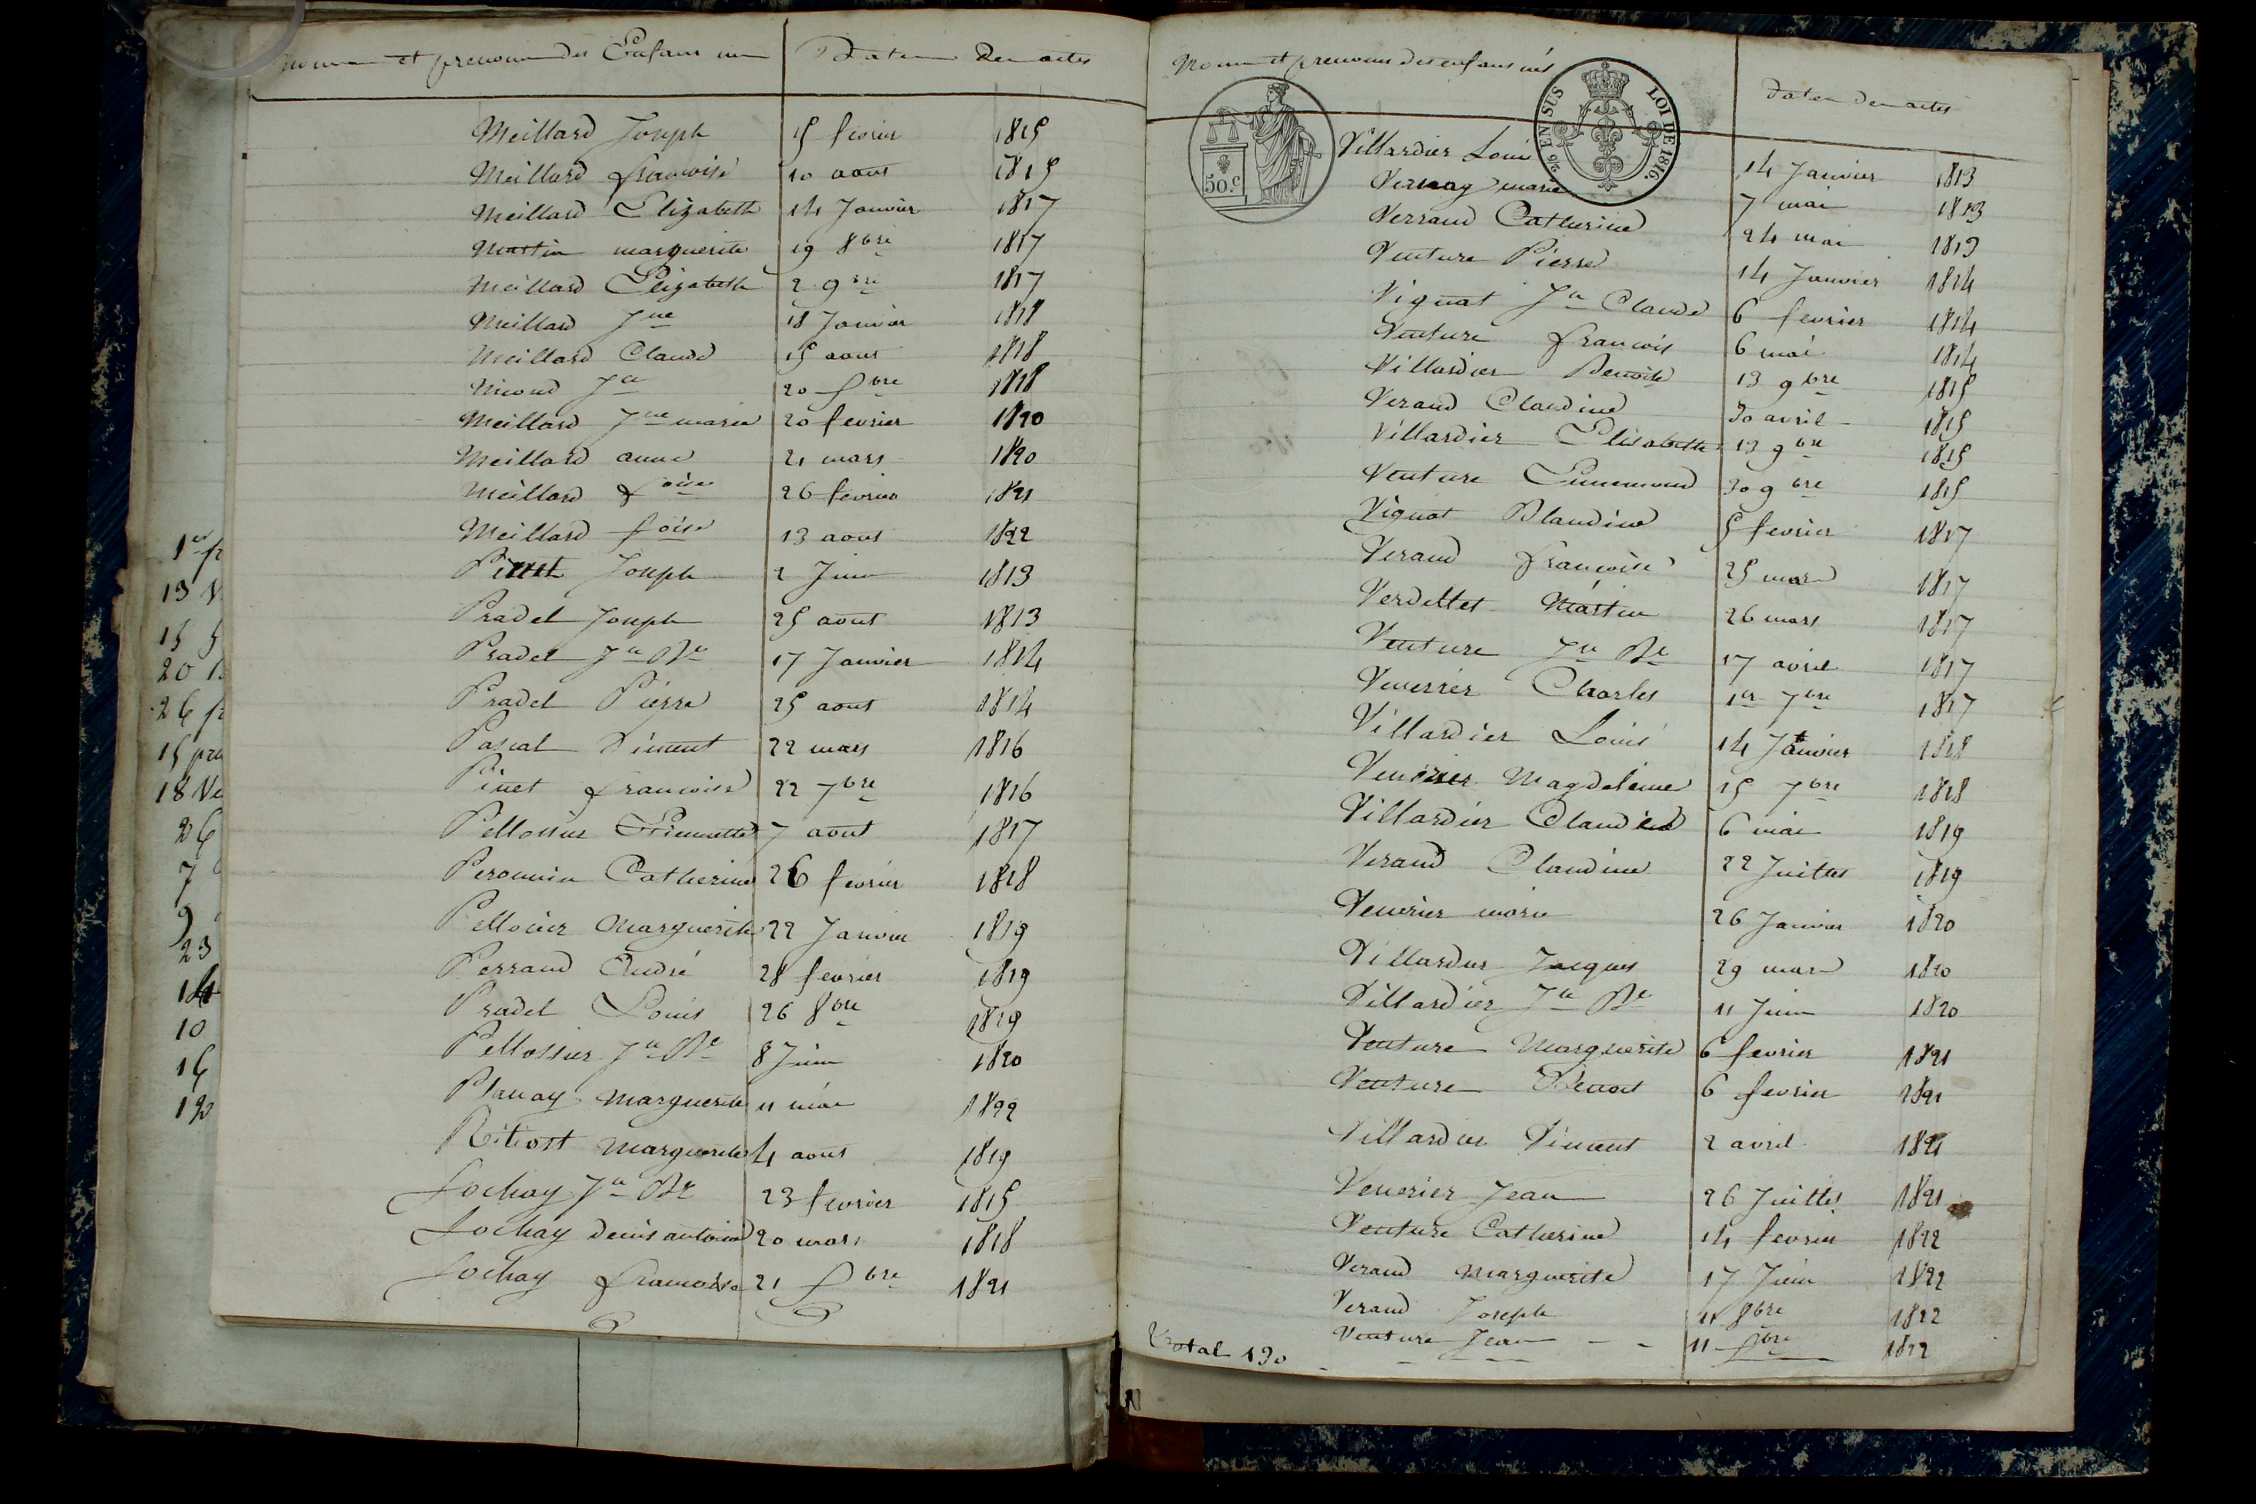 Noms et prenoms des Enfans nés Dates Des actes
Meillard Joseph 15 fevrier 1815
Meillard francoise 10 aout 1815
Meillard Elizabeth 14 Janvier 1817
Martin marguerite 19 8bre 1817
Meillard Elizabeth 2 9bre 1817
Meillard Jne 18 Janvier 1818
Meillard Claude 15 aout 1818
Jn 20 Xbre 1818
Meillard Jne marie 20 fevrier 1820
Meillard anne 21 mars 1820
Meillard foise 26 fevrier 1821
Meillard foise 13 aout 1822
Pinet Joseph 2 Juin 1813
Pradel Joseph 25 aout 1813
Pradel Jn Bte 17 Janvier 1814
Pradel Pierre 25 aout 1814
Pascal Vincent 22 mars 1816
Pinet francoise 22 7bre 1816
Pellossier Etiennette 7 aout 1817
Peronnin Catherine 26 fevrier 1818
Pellocier Marguerite 22 Janvier 1819
Perraud André 28 fevrier 1819
Pradel Louis 26 8bre 1819
Pellossier Jn Bte 8 Juin 1820
Planay Marguerite 11 mai 1822
Marguerite 4 aout 1819
Sochay Jn Bte 23 fevrier 1815
Sochay denis antoine 20 mars 1818
Sochay francoise 21 Xbre 1821
Noms et prenoms des enfans nés Dates Des actes
50.c
2/26 EN SUS LOI DE 1816.
Villardier Louis 14 Janvier 1813
Vernay marie 7 mai 1813
Verraud Catherine 24 mai 1813
Venture Pierre 14 Janvier 1814
Vignat Jn Claude 6 fevrier 1814
Venture francois 6 mai 1814
Villardier Benoite 13 9bre 1815
Veraud Claudine 30 avril 1815
Villardier Elisabeth 13 9bre 1815
Venture Ennemond 30 9bre 1815
Vignat Blandine 5 fevrier 1817
Veraud francoise 25 mars 1817
Verdellet Martin 26 mars 1817
Venture Jn Bte 17 avril 1817
Venerier Charles 1er 7bre 1817
Villardier Louis 14 Janvier 1818
Venerier Magdeleine 15 7bre 1818
Villardier Claudine 6 mai 1819
Veraud Claudine 22 Juillet 1819
Venerier marie 26 Janvier 1820
Villardier Jacques 29 mars 1820
Villardier Jn Bte 11 Juin 1820
Venture Marguerite 6 fevrier 1821
Venture Benoit 6 fevrier 1821
Villardier Vincent 2 avril 1821
Venerier Jean 26 Juillet 1821
Venture Catherine 14 fevrier 1822
Veraud Marguerite 17 Juin 1822
Veraud Joseph 11 8bre 1822
Venture Jean 11 Xbre 1822
Total 130